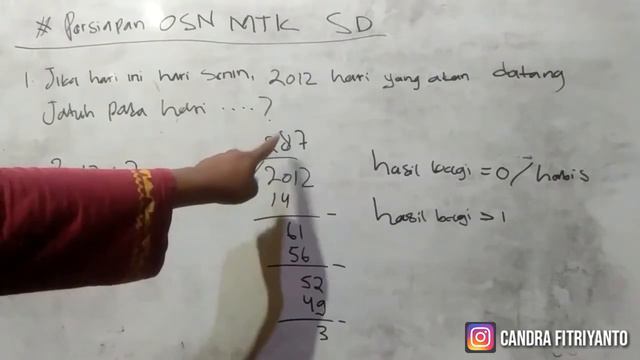 # Persiapan OSN MTK SD
1. Jika hari ini hari Senin, 2012 hari yang akan datang
Jatuh pada hari ....?
287
2012
14
61
56
52
49
3
hasil bagi = 0 / habis
hasil bagi > 1
CANDRA FITRIYANTO